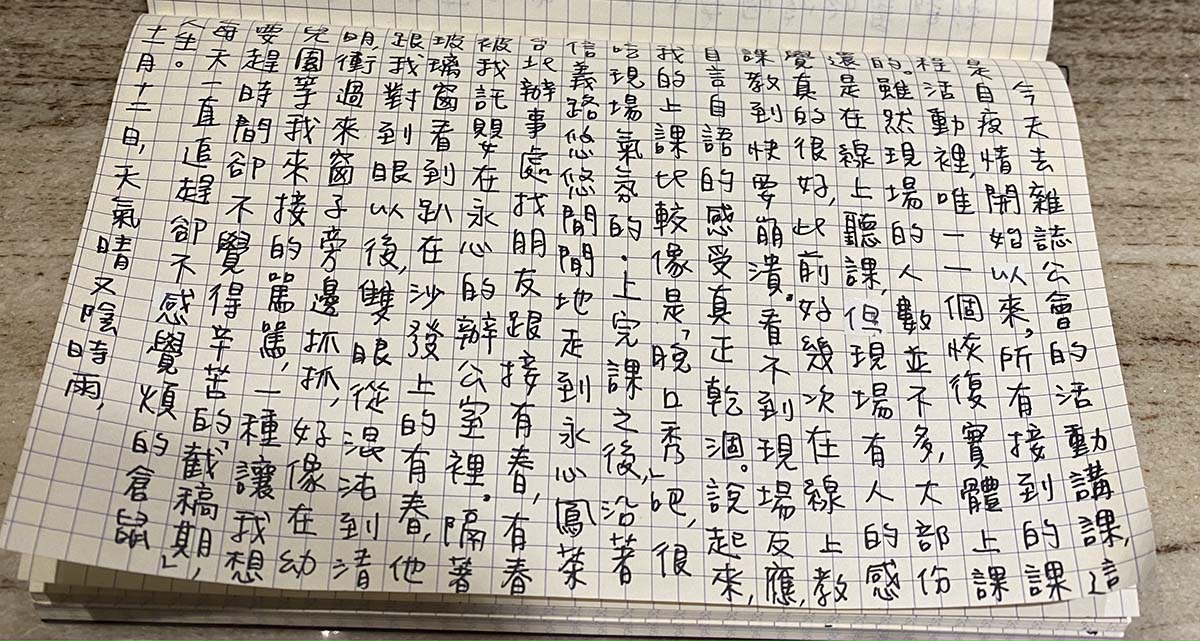 今天去雜誌公會的活動講課,這
是自疫情開始以來,所有接到的課
程活動裡,唯一一個恢復實體上課
的。雖然現場的人數並不多,大部份
還是在線上聽課,但現場有人的感
覺真的很好,比前好幾次在線上教
課教到快要崩潰。看不到現場反應,
自言自語的感受真正乾涸。說起來,
我的上課比較像是「脫口秀」吧,很
吃現場氣氛的。上完課之後,沿著
信義路悠悠閒閒地走到永心鳳茶
台北辦事處找朋友跟接有春,有春
被我託嬰在永心的辦公室裡。隔著
玻璃窗看到趴在沙發上的有春,他
跟我對到眼以後,雙眼從混沌到清
明,衝過來窗子旁邊抓抓,好像在幼
兒園等我來接的篤篤,一種讓我想
要趕時間卻不覺得辛苦的「截稿期」,
每天一直追趕卻不感覺煩的倉鼠
人生。
十一月十二日,天氣晴又陰時雨,